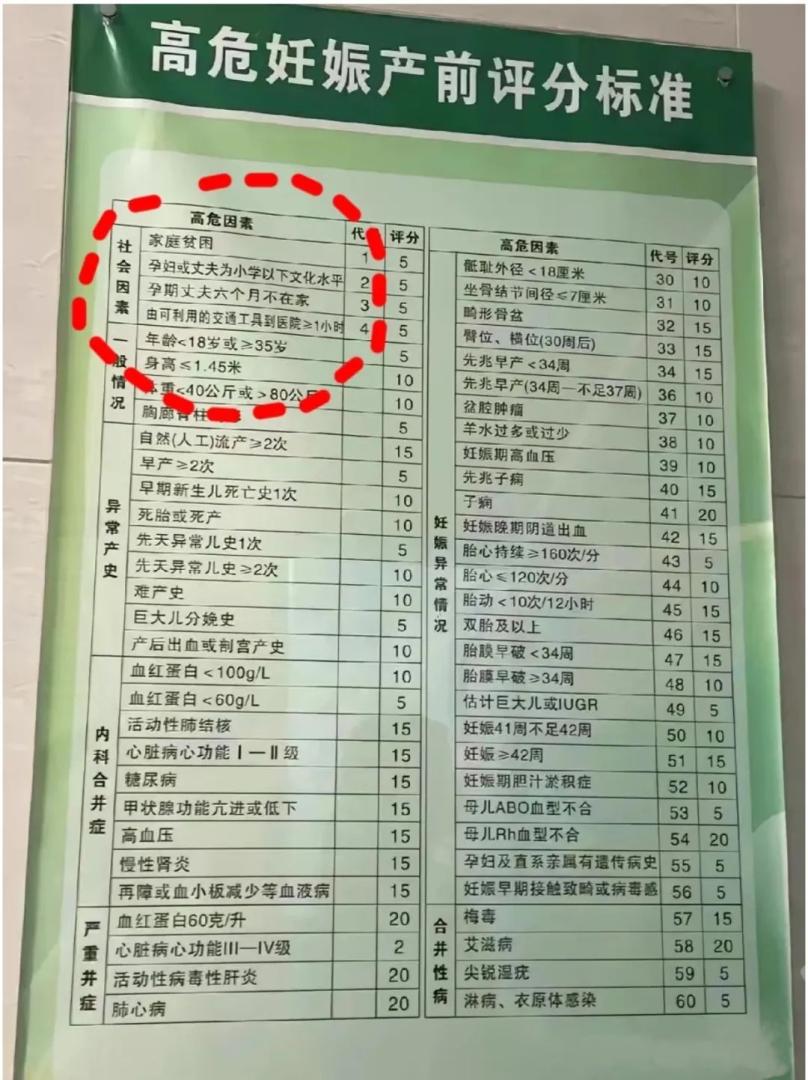 高危妊娠产前评分标准
高危因素 代 评分
社会因素
家庭贫困 1 5
孕妇或丈夫为小学以下文化水平 2 5
孕期丈夫六个月不在家 3 5
由可利用的交通工具到医院≥1小时 4 5
一般情况
年龄<18岁或≥35岁 5
身高≤1.45米 10
体重<40公斤或>80公斤 10
胸廓脊柱 5
异常产史
自然(人工)流产≥2次 15
早产≥2次 5
早期新生儿死亡史1次 10
死胎或死产 10
先天异常儿史1次 5
先天异常儿史≥2次 10
难产史 10
巨大儿分娩史 5
产后出血或剖宫产史 10
内科合并症
血红蛋白<100g/L 10
血红蛋白<60g/L 5
活动性肺结核 15
心脏病心功能Ⅰ—Ⅱ级 15
糖尿病 15
甲状腺功能亢进或低下 15
高血压 15
慢性肾炎 15
再障或血小板减少等血液病 15
严重并症
血红蛋白60克/升 20
心脏病心功能III—IV级 2
活动性病毒性肝炎 20
肺心病 20
高危因素 代号 评分
妊娠异常情况
骶耻外径<18厘米 30 10
坐骨结节间径≤7厘米 31 10
畸形骨盆 32 15
臀位、横位(30周后) 33 15
先兆早产<34周 34 15
先兆早产(34周—不足37周) 36 10
盆腔肿瘤 37 10
羊水过多或过少 38 10
妊娠期高血压 39 10
先兆子痫 40 15
子痫 41 20
妊娠晚期阴道出血 42 15
胎心持续≥160次/分 43 5
胎心≤120次/分 44 10
胎动<10次/12小时 45 15
双胎及以上 46 15
胎膜早破<34周 47 15
胎膜早破≥34周 48 10
估计巨大儿或IUGR 49 5
妊娠41周不足42周 50 10
妊娠≥42周 51 15
妊娠期胆汁淤积症 52 10
母儿ABO血型不合 53 5
母儿Rh血型不合 54 20
孕妇及直系亲属有遗传病史 55 5
妊娠早期接触致畸或病毒感 56 5
合并性病
梅毒 57 15
艾滋病 58 20
尖锐湿疣 59 5
淋病、衣原体感染 60 5